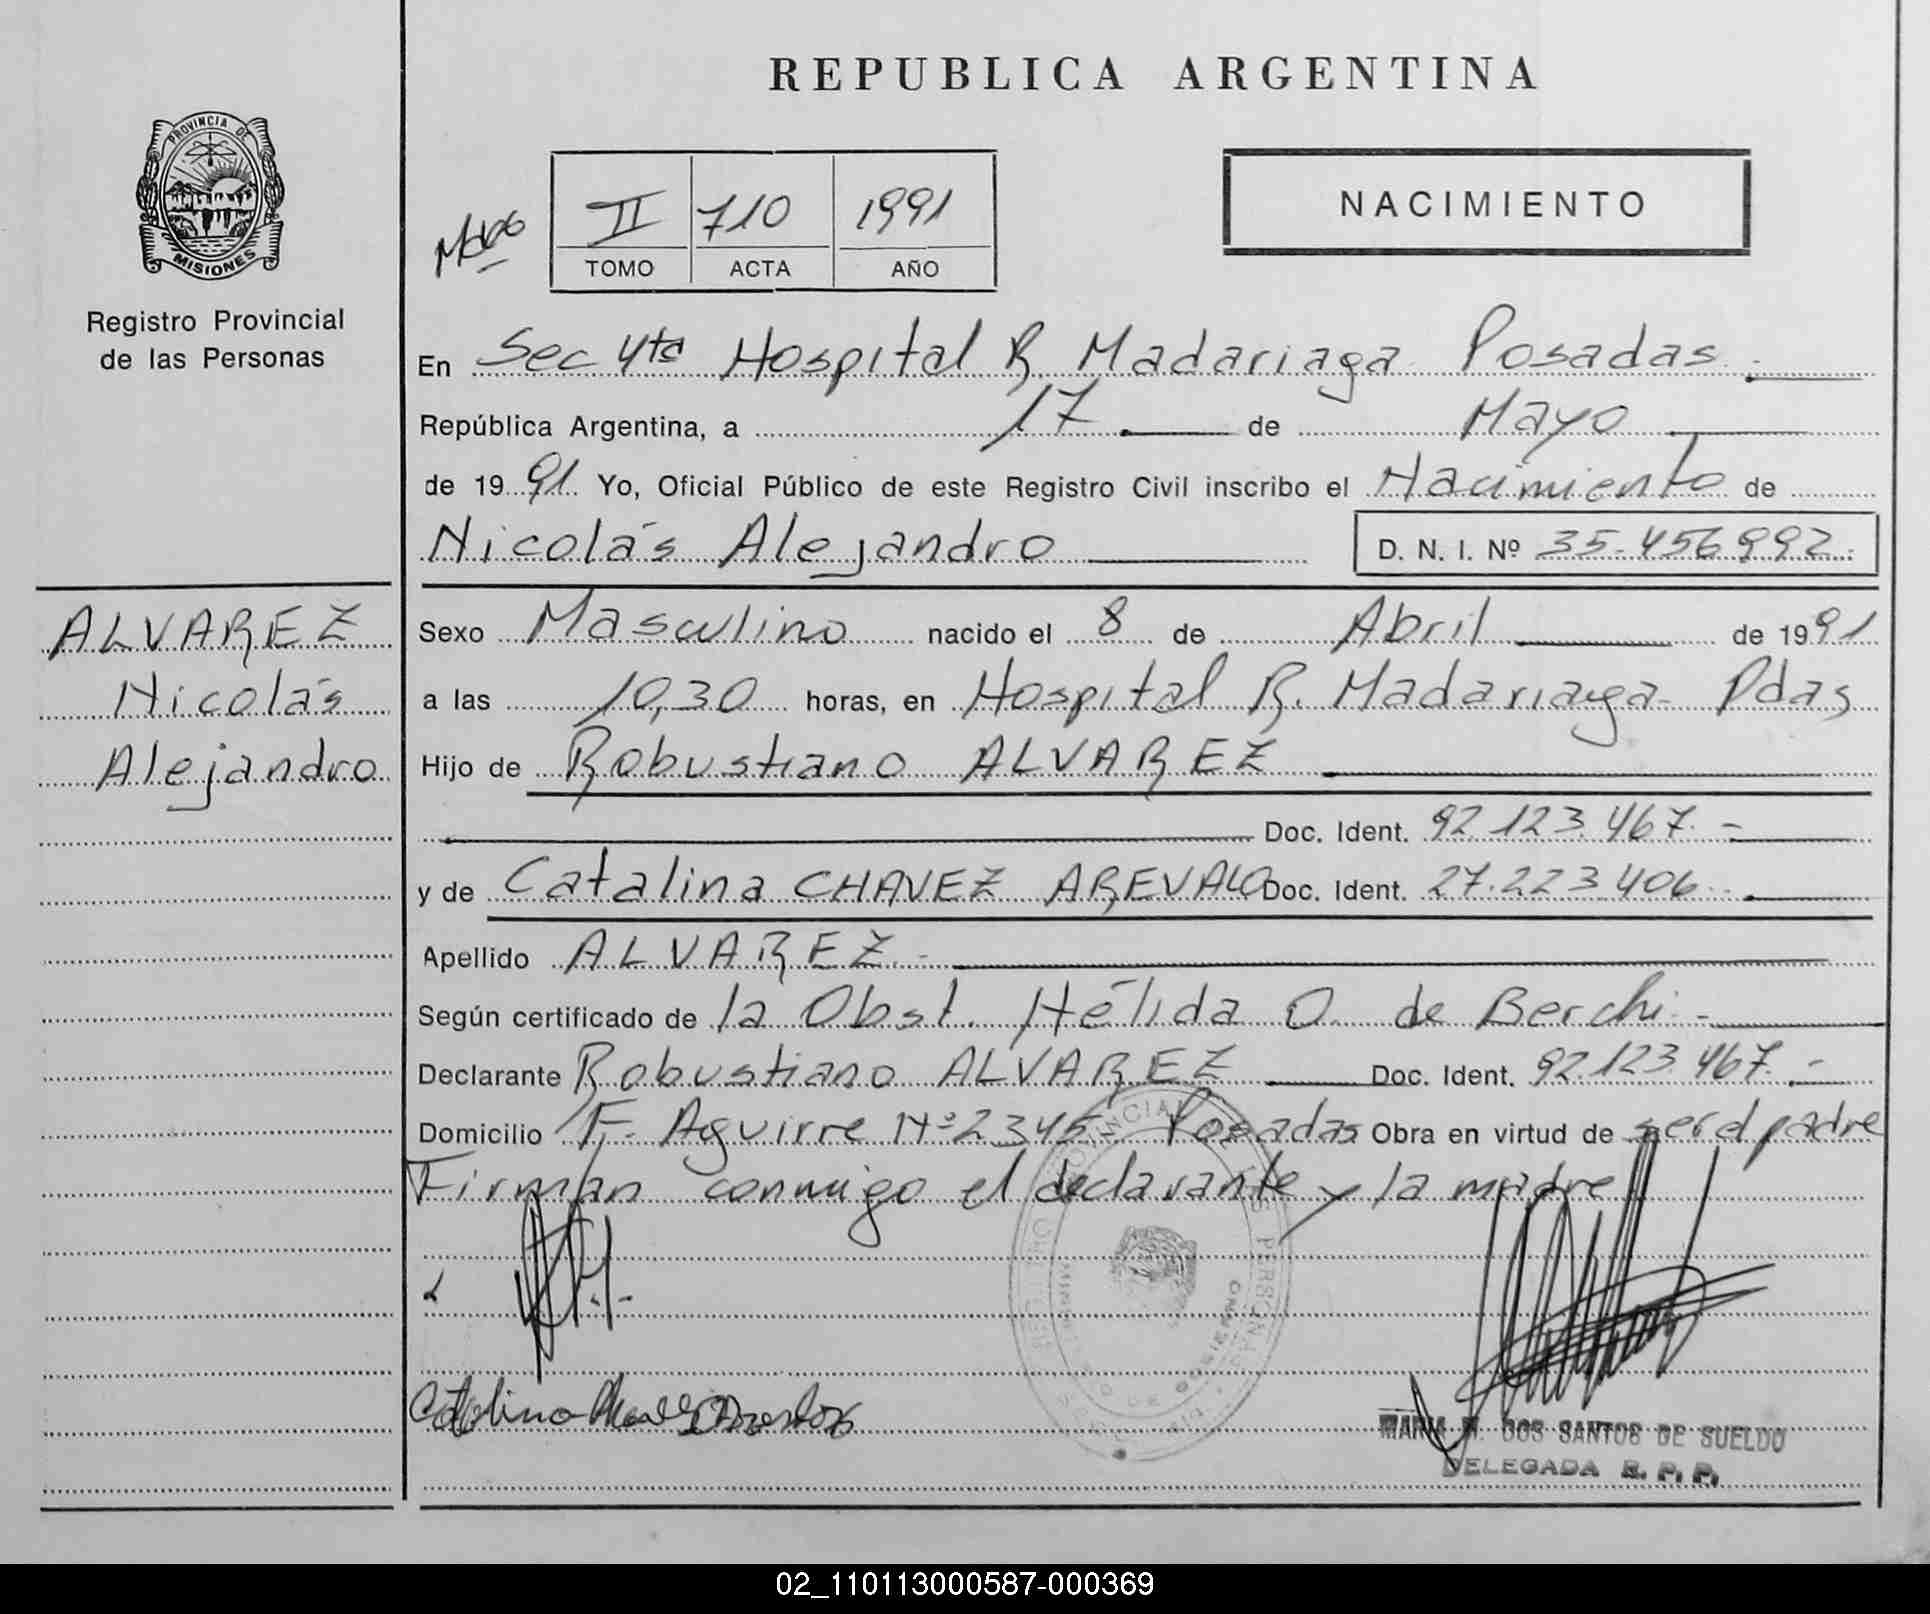 REPUBLICA ARGENTINA
PROVINCIA DE
MISIONES
Registro Provincial
de las Personas
II 710 1991
TOMO ACTA AÑO
NACIMIENTO
En Sec 4ta Hospital R. Madariaga Posadas.
República Argentina, a 17 de Mayo
de 1991 Yo, Oficial Público de este Registro Civil inscribo el Nacimiento de
Nicolás Alejandro D. N. I. Nº 35.456992.
ALVAREZ
Nicolás
Alejandro
Sexo Masculino nacido el 8 de Abril de 1991
a las 10,30 horas, en Hospital R. Madariaga - Pdas
Hijo de Robustiano ALVAREZ
Doc. Ident. 92.123.467.-
y de Catalina CHAVEZ AREVALO Doc. Ident. 27.223.406.
Apellido ALVAREZ.-
Según certificado de la Obst. Hélida O. de Berchi.-
Declarante Robustiano ALVAREZ Doc. Ident. 92.123.467.-
Domicilio F. Aguirre Nº 2345 Posadas Obra en virtud de ser el padre
Firman conmigo el declarante y la madre
REGISTRO PROVINCIAL DE LAS PERSONAS
DE GOBIERNO
Catalina
MARIA N. DOS SANTOS DE SUELDO
DELEGADA R. P. P.
02_110113000587-000369